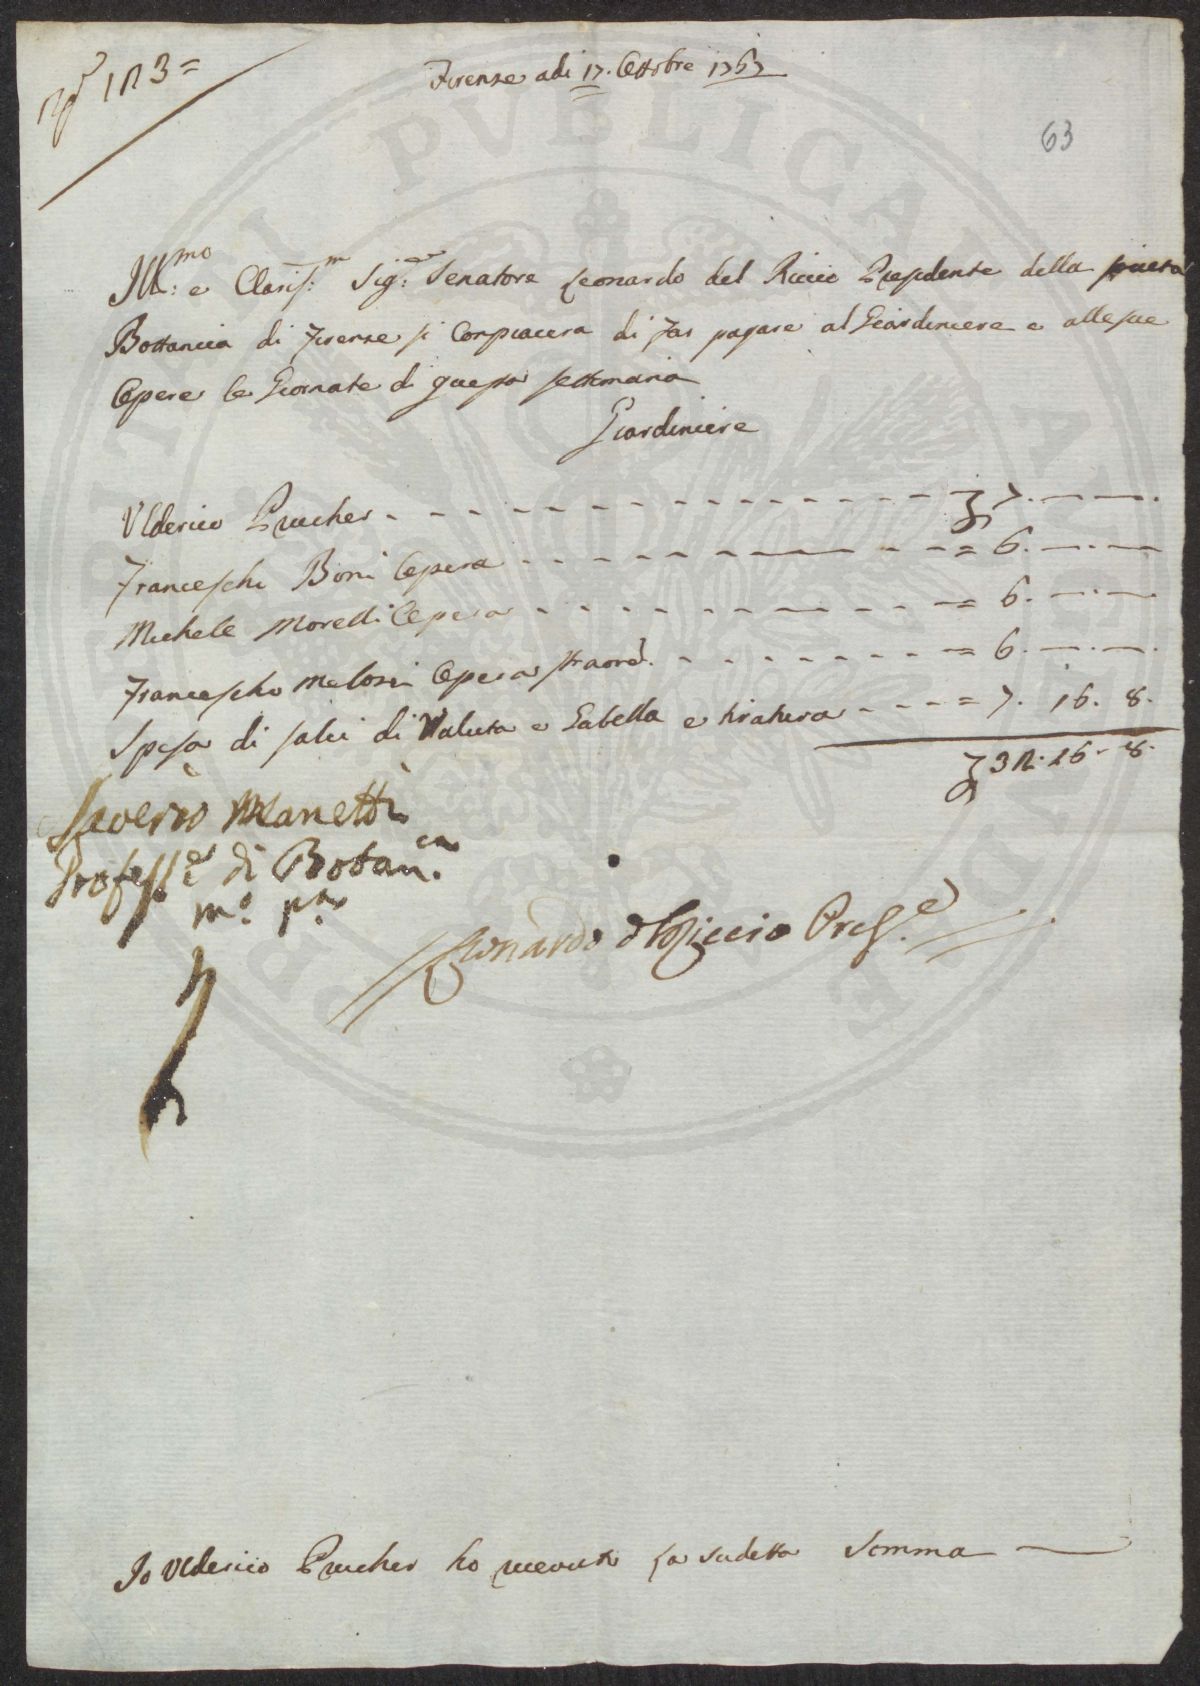 N° 123=
Firenze adi 17. Ottobre 1767
63
Ill:mo e Clariss:m Sig:r Senatore Leonardo del Riccio Presidente della Società
Bottanica di Firenze si Conpiacera di far pagare al Giardiniere e alle sue
Opere le Giornate di questa settimana
Giardiniere
Ulderico Prucher - - - - - - - - 7. — —
Franceschi Boni Opera - - - - - = 6. — —
Michele Morelli Opera - - - - - = 6. — —
Francescho Melosi Opera straord. - - - - - = 6. — —
Spesa di salci di Valuta e Gabella e tiratura - - - - = 7. 16. 8.
32. 16. 8.
Saverio Manetti
Profess:e di Botan:ca
m:o p:a
Leonardo del Riccio Pres:e
Io Ulderico Prucher ho riceuto la sudetta Somma